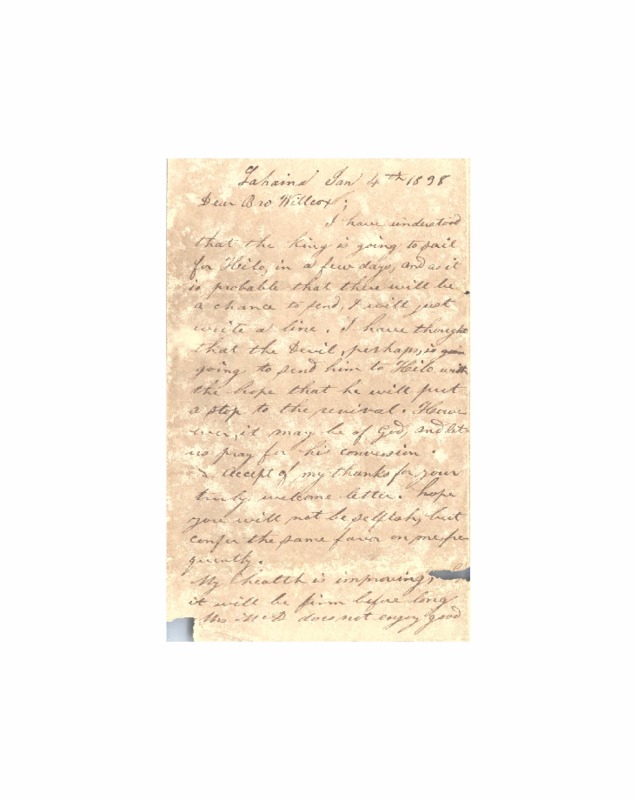 Lahaina Jan 4th 1838
Dear Bro Willcox;
I have understood
that the king is going to sail
for Hilo, in a few days, and as it
is probable that there will be
a chance to send, I will just
write a line. I have thought
that the Devil, perhaps, is
going to send him to Hilo with
the hope that he will put
a stop to the revival. Howe
ever, it may be of God, and let
us pray for his conversion.
Accept of my thanks for your
truly welcome letter. hope
you will not be selfish, but
confer the same favor on me fre
quently.
My health is improving,
it will be firm before long
Mrs McD does not enjoy good